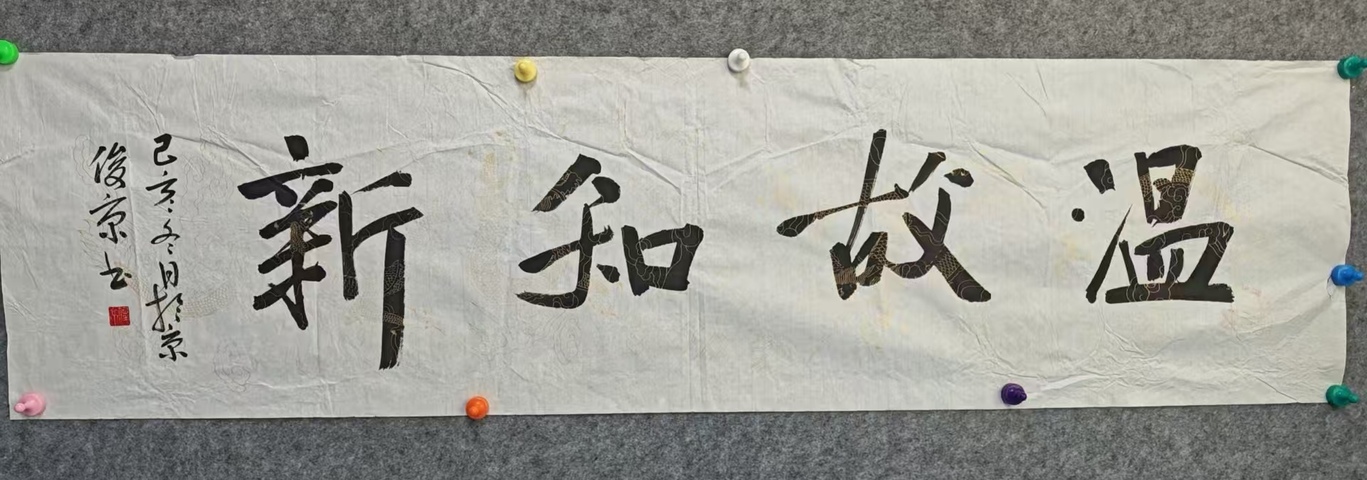 温故知新
己亥冬日於京
俊京书